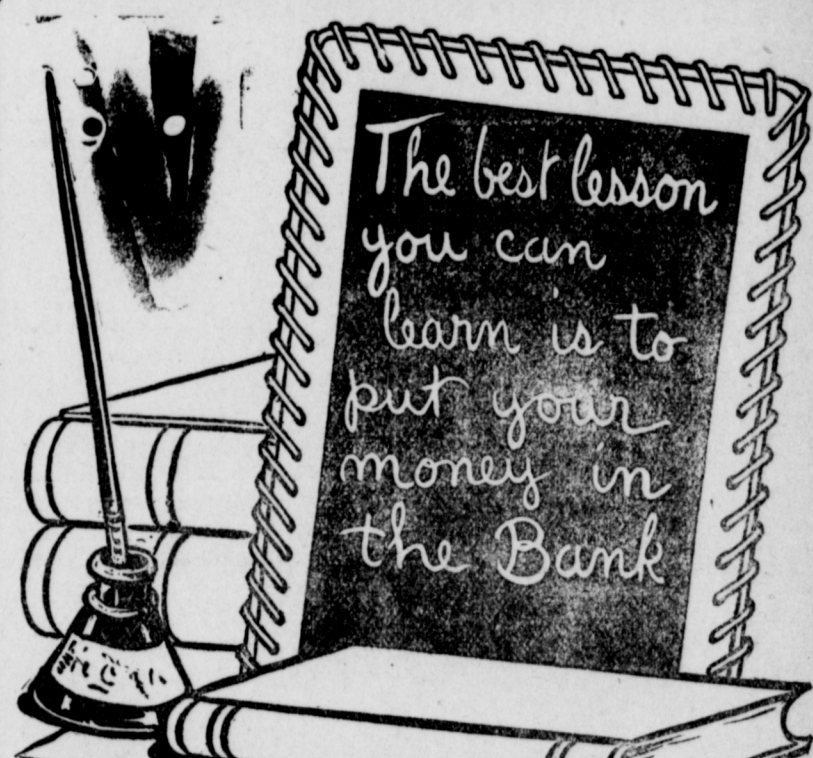 The best lesson
you can
learn is to
put your
money in
the Bank